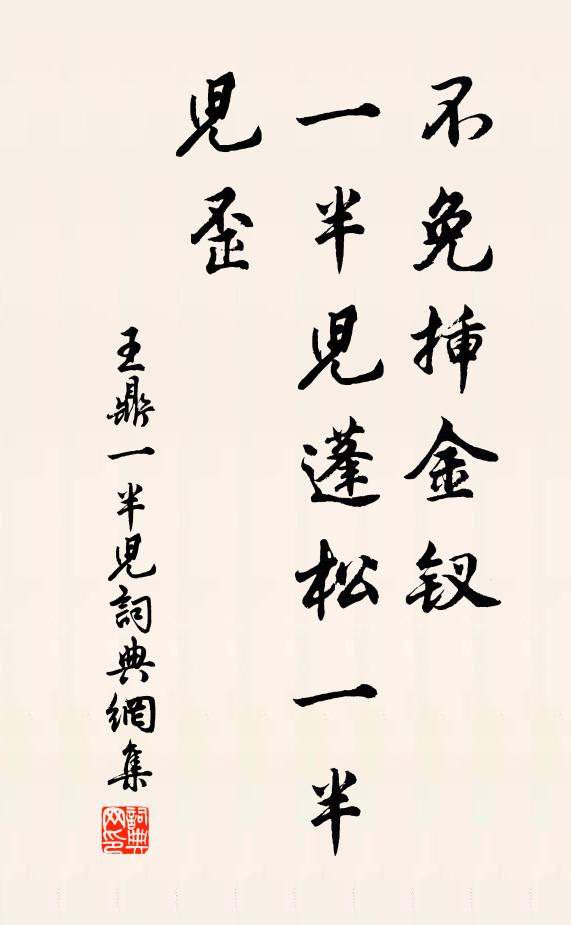 不免揷金釵
一半兒蓬松一半
兒歪
王鼎一半兒詞典網集
詞典网印